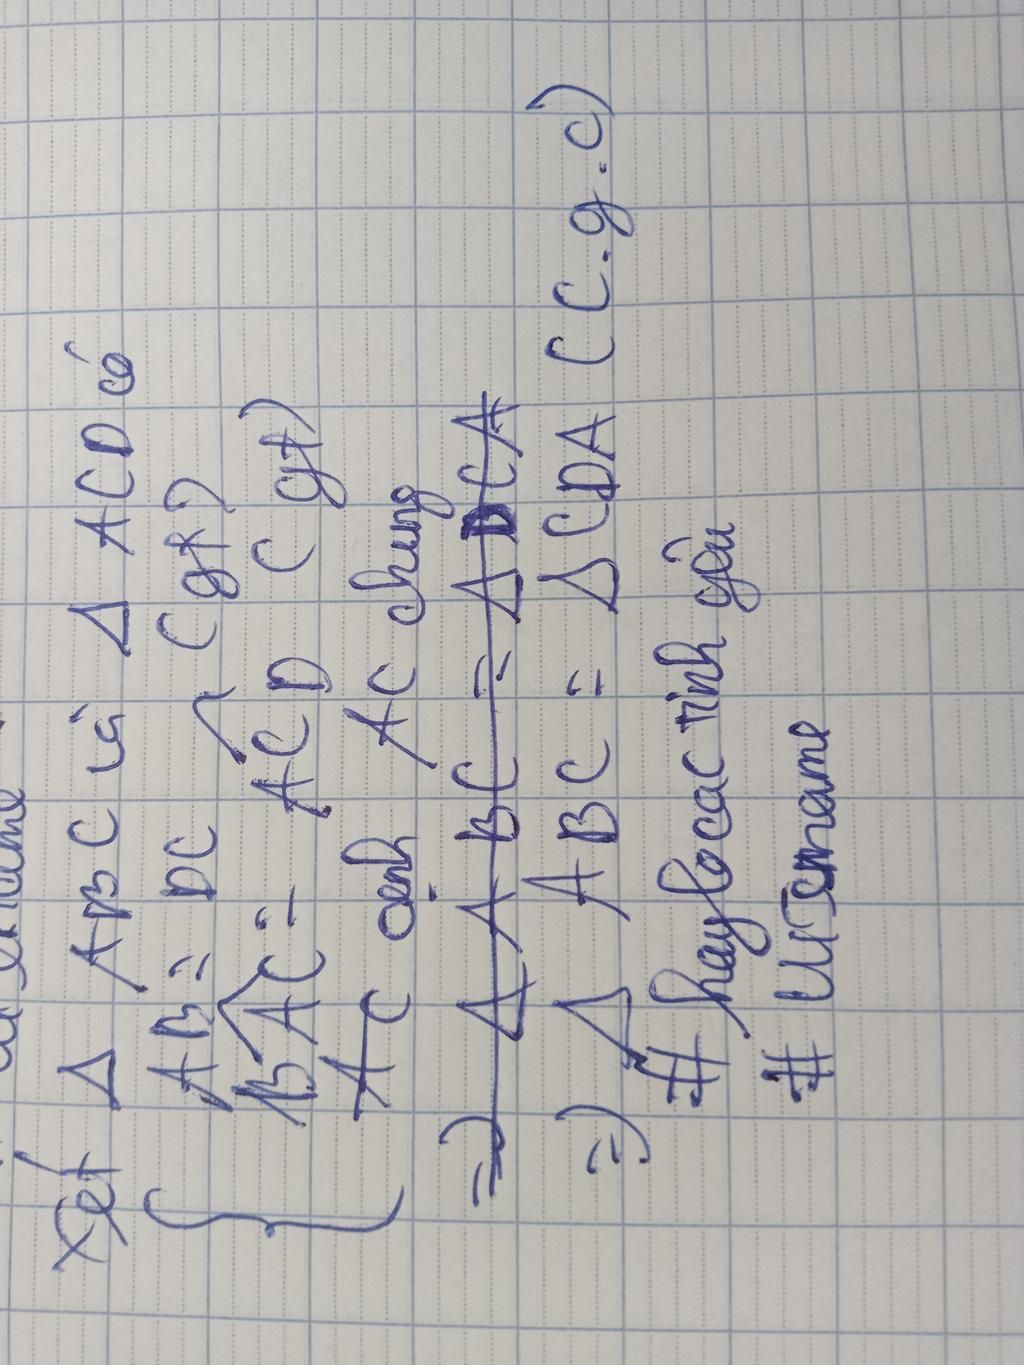 Xét Δ ABC và Δ ACD có
AB = DC (gt)
BAC = ACD (gt)
AC cạnh AC chung
=) Δ ABC = Δ DCA
=) Δ ABC = Δ CDA (C.g.c)
# hay lo cac tinh yêu